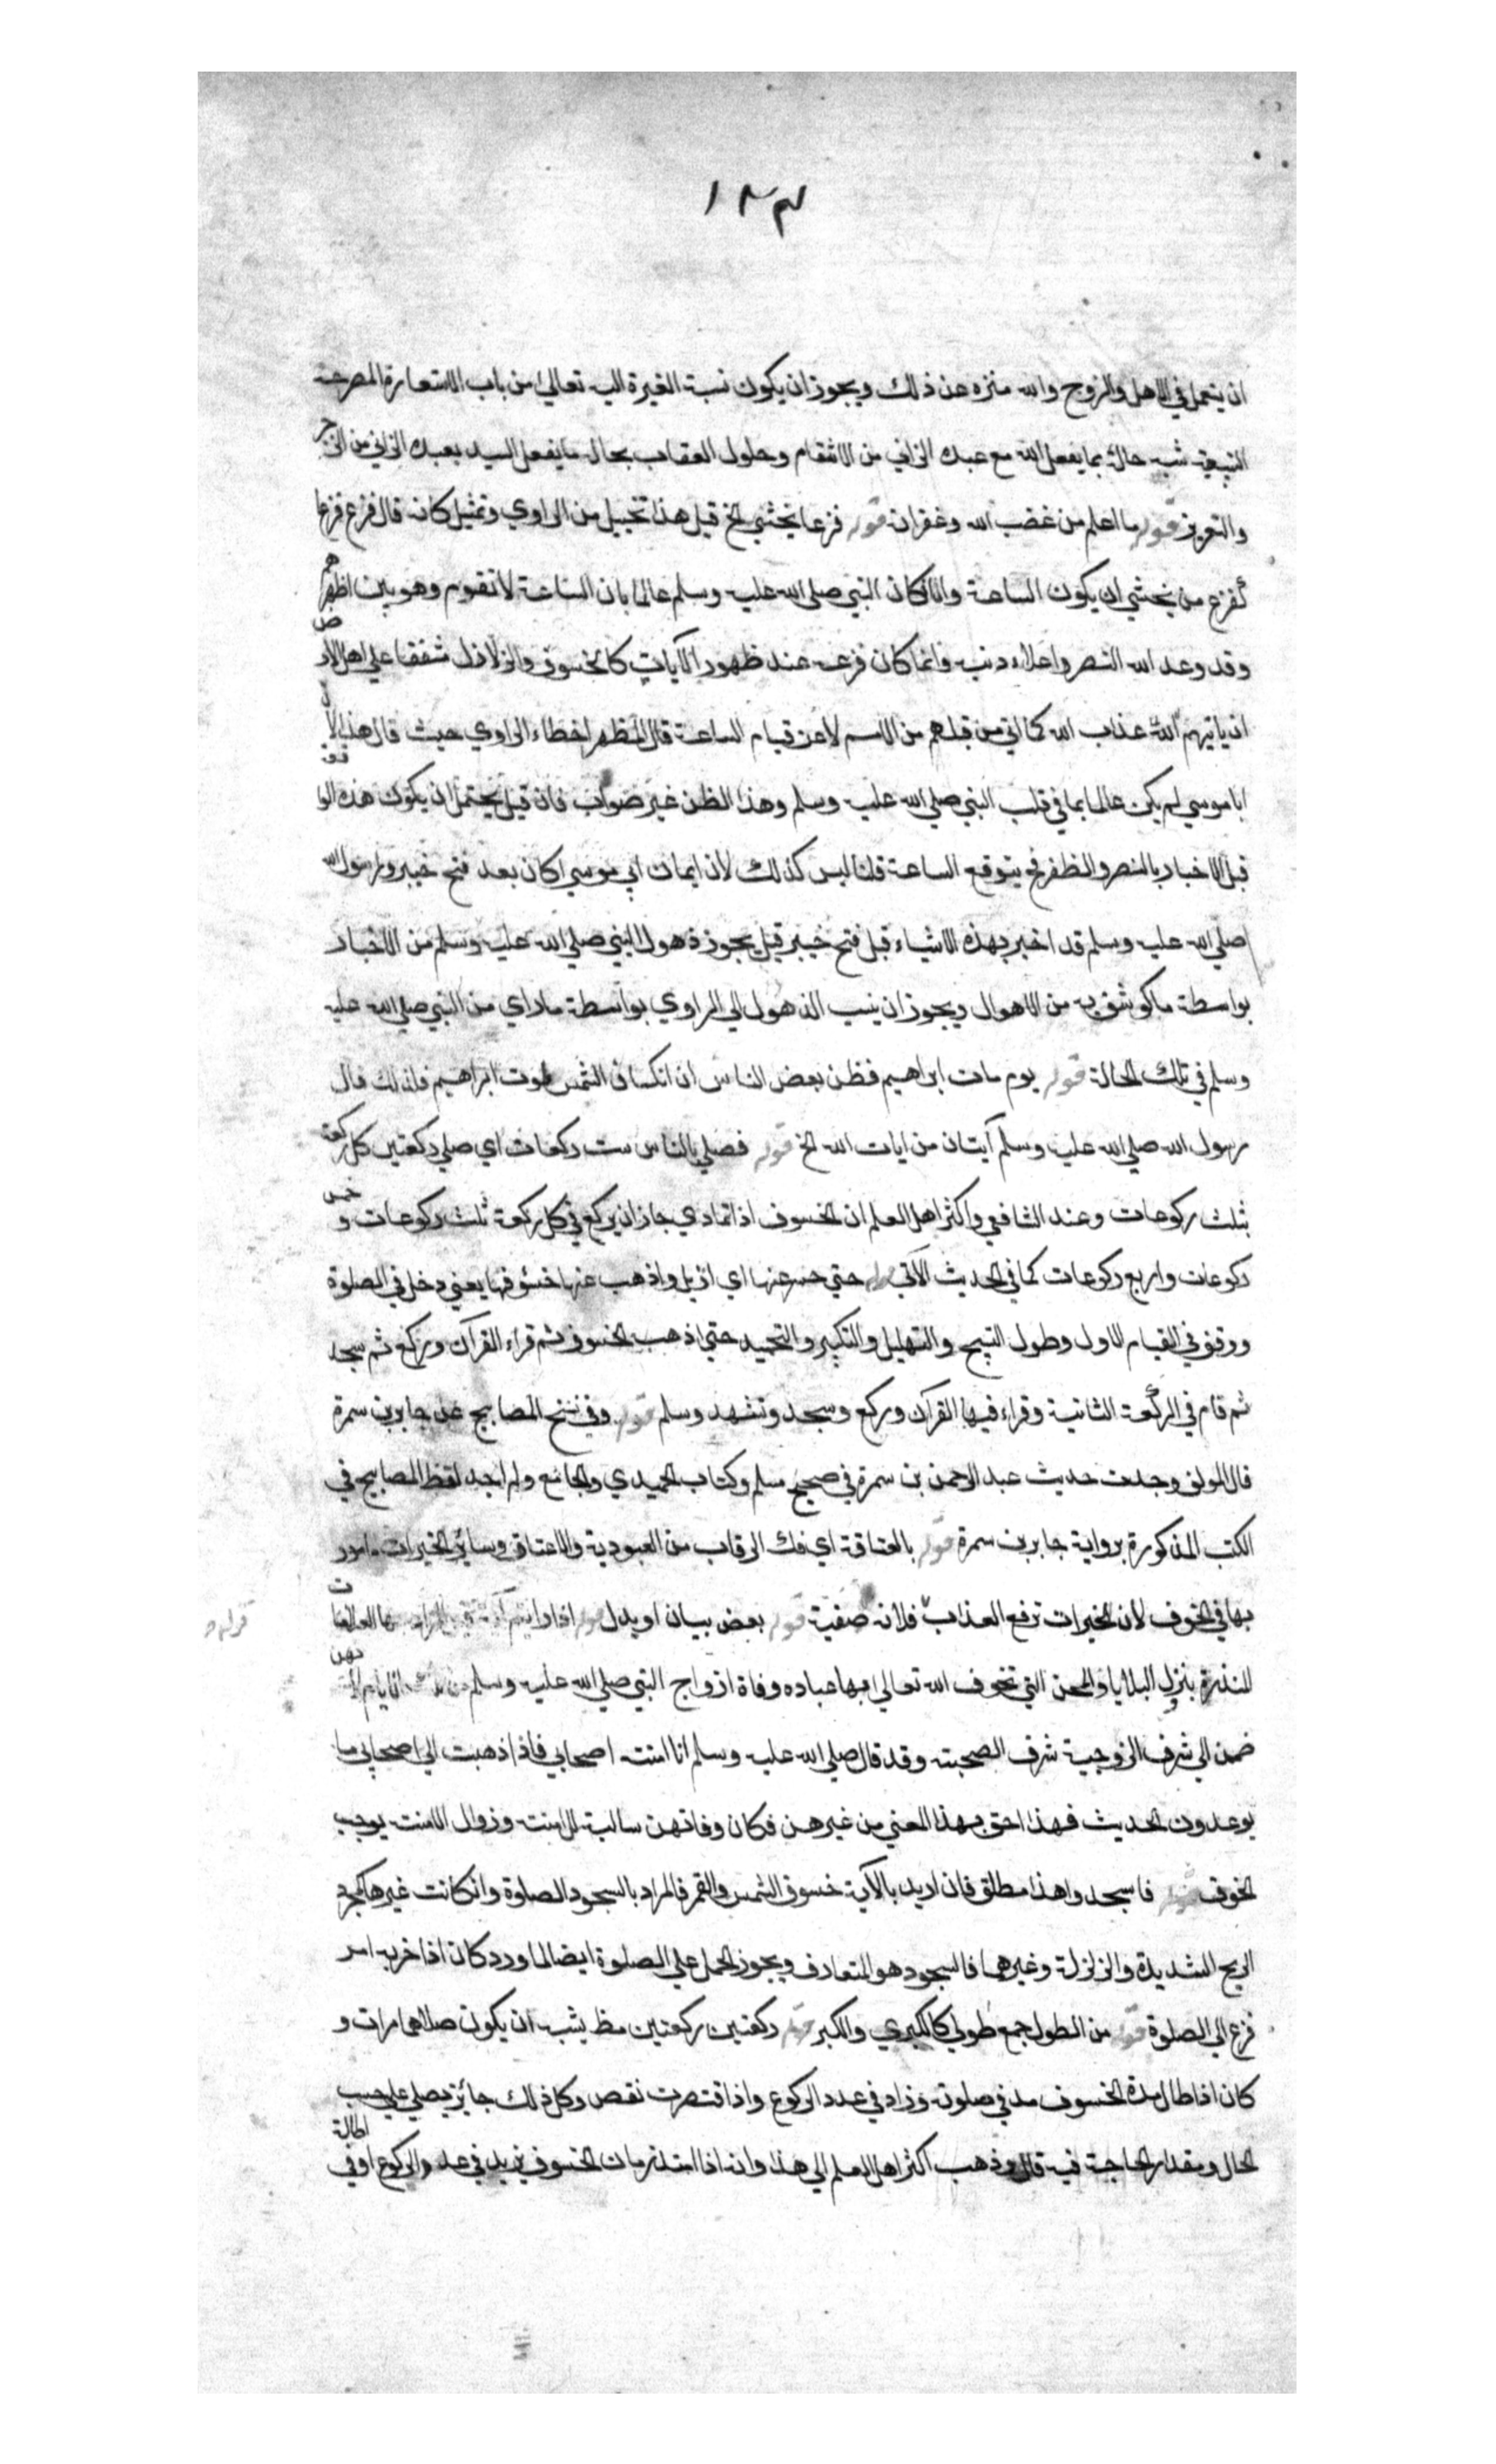 ١٨٣
ان يتحمل في الاهل والزوج والله منزه عن ذلك ويجوز ان يكون نسبة الغيرة اليه تعالى من باب الاستعارة المصرحة
التبعية شبه حالة بما يفعل الله مع عبده الزاني من الانتقام وحلول العقاب بحال ما يفعل السيد بعبده الزاني من الزجر
والتعزير قوله ما اعلم من غضب الله وغفرانه قوله فزعا يخشي الخ قيل هذا تخييل من الراوي وتمثيل كانه قال فزع فزعا
كفزع من يخشي ان يكون الساعة والا فكان النبي صلي الله عليه وسلم عالما بان الساعة لا تقوم وهو بين اظهرهم
وقد وعد الله النصر واعلاء دينه وانما كان فزعه عند ظهور الآيات كالخسوف والزلازل شفقا علي اهل الارض
ان ياتيهم عذاب الله كما اتي من قبلهم من الامم لا عن قيام الساعة قال المظهر اخطاء الراوي حيث قال هذا لان
ابا موسي لم يكن عالما بما في قلب النبي صلي الله عليه وسلم وهذا الظن غير صواب فان قيل يحتمل ان يكون هذه الواقعة
قبل الاخبار بالنصر والظفر فح يتوقع الساعة قلنا ليس كذلك لان ايمان ابي موسي كان بعد فتح خيبر ورسول الله
صلي الله عليه وسلم قد اخبر بهذه الاشياء قبل فتح خيبر قيل يجوز ذهول النبي صلي الله عليه وسلم من الاخبار
بواسطة ما كوشف به من الاهوال ويجوز ان ينسب الذهول الي الراوي بواسطة ما راي من النبي صلي الله عليه
وسلم في تلك الحالة قوله يوم مات ابراهيم فظن بعض الناس ان انكساف الشمس لموت ابراهيم فلذلك قال
رسول الله صلي الله عليه وسلم آيتان من ايات الله الخ قوله فصلي بالناس ست ركعات اي صلي ركعتين كل ركعة
بثلث ركوعات وعند الشافعي واكثر اهل العلم ان الخسوف اذا تمادي جاز ان يركع في كل ركعة ثلث ركوعات وخمس
ركوعات واربع ركوعات كما في الحديث الآتي قوله حتي حسر عنها اي ازيل واذهب عنها خسوفها يعني دخل في الصلوة
ووقف في القيام الاول وطول التسبيح والتهليل والتكبير والتحميد حتي اذهب الخسوف ثم قراء القرآن وركع ثم سجد
ثم قام في الركعة الثانية وقراء فيها القرآن وركع وسجد وتشهد وسلم قوله وفي نسخ المصابيح عن جابر بن سمرة
قال المولف وجدت حديث عبد الرحمن بن سمرة في صحيح مسلم وكتاب الحميدي والجامع ولم اجد لفظ المصابيح في
الكتب المذكورة برواية جابر بن سمرة قوله بالعتاقة اي فك الرقاب من العبودية والاعتاق وسائر الخيرات مامور
بها في الخوف لان الخيرات ترفع العذاب فلانة صفية قوله بعض بيان او بدل قوله اذا رايتم آية المراد بها العلامات
المنذرة بنزول البلايا والمحن التي تخوف الله تعالي بها عباده وفاة ازواج النبي صلي الله عليه وسلم من
ضمن الي شرف الزوجية شرف الصحبة وقد قال صلي الله عليه وسلم انا امنة اصحابي فاذا ذهبت الي اصحابي ما
يوعدون الحديث فهذا احق بهذا المعني من غيرهن فكان وفاتهن سالبة للامنة وزوال الامنة يوجب
الخوف قوله فاسجدوا هذا مطلق فان اريد بالآية خسوف الشمس والقمر فالمراد بالسجود الصلوة وان كانت غيرها كمجرد
الريح الشديدة والزلزلة وغيرهما فالسجود هو المتعارف ويجوز الحمل علي الصلوة ايضا لما ورد كان اذا حزبه امر
فزع الي الصلوة قوله من الطول جمع طولي كالكبري والكبر قوله ركعتين ركعتين مظ يشبه ان يكون صلاهما مرات و
كان اذا طال مدة الخسوف مد في صلوته وزاد في عدد الركوع واذا قتصرت نقص وكل ذلك جائز يصلي علي حسب
الحال ومقدار الحاجة فيه قال وذهب اكثر اهل العلم الي هذا وانه اذا امتد زمان الخسوف يزيد في عدد الركوع او في اطالة